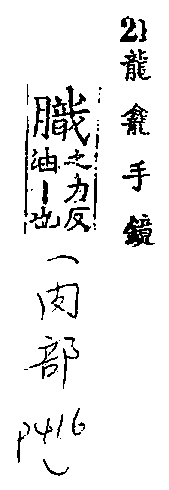 21 龍龕手鏡
䐈 之力反
油丨出
(肉部
P416)